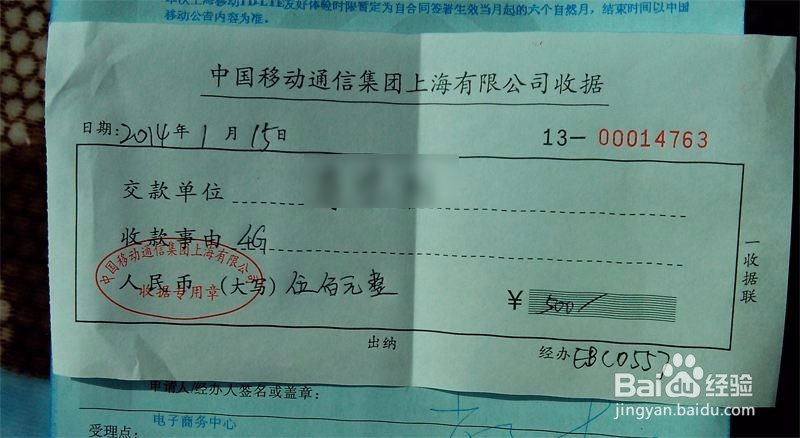 本次上海移动TD-LTE友好体验时限暂定为自合同签署生效当月起的六个自然月，结束时间以中国
移动公告内容为准。
中国移动通信集团上海有限公司收据
日期:2014年1月15日
13-00014763
交款单位
收款事由 4G
中国移动通信集团上海有限公司
收据专用章
人民币 (大写) 伍佰元整
¥ 500/
一收据联
出纳
经办 EBC0557
申请人/经办人签名或盖章：
受理点： 电子商务中心
Baidu经验
jingyan.baidu.com